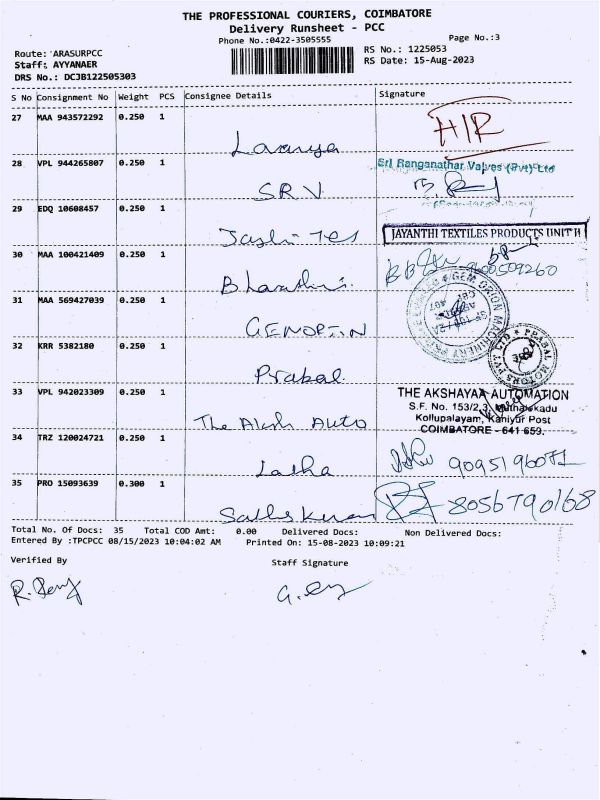 THE PROFESSIONAL COURIERS, COIMBATORE
Delivery Runsheet - PCC
Phone No.:0422-3505555
Page No.:3
Route: ARASURPCC
RS No.: 1225053
Staff: AYYANAER
RS Date: 15-Aug-2023
DRS No.: DCJB122505303
S No Consignment No Weight PCS Consignee Details Signature
27 MAA 943572292 0.250 1
Lavanya
H/R
28 VPL 944265807 0.250 1
Sri Ranganathar Valves (Pvt) Ltd
SRV
29 EDQ 10608457 0.250 1
JAYANTHI TEXTILES PRODUCTS UNIT II
30 MAA 100421409 0.250 1
9600509260
31 MAA 569427039 0.250 1
32 KRR 5382180 0.250 1
PRABAL MOTORS PVT LTD
Prabal
33 VPL 942023309 0.250 1
THE AKSHAYAA AUTOMATION
S.F. No. 153/2,3, Muthalekadu
Kollupalayam, Kaniyur Post
COIMBATORE - 641 659.
The Aksh Auto
34 TRZ 120024721 0.250 1
Latha
9095196071
35 PRO 15093639 0.300 1
8056790168
Total No. Of Docs: 35 Total COD Amt: 0.00 Delivered Docs: Non Delivered Docs:
Entered By :TPCPCC 08/15/2023 10:04:02 AM Printed On: 15-08-2023 10:09:21
Verified By
Staff Signature